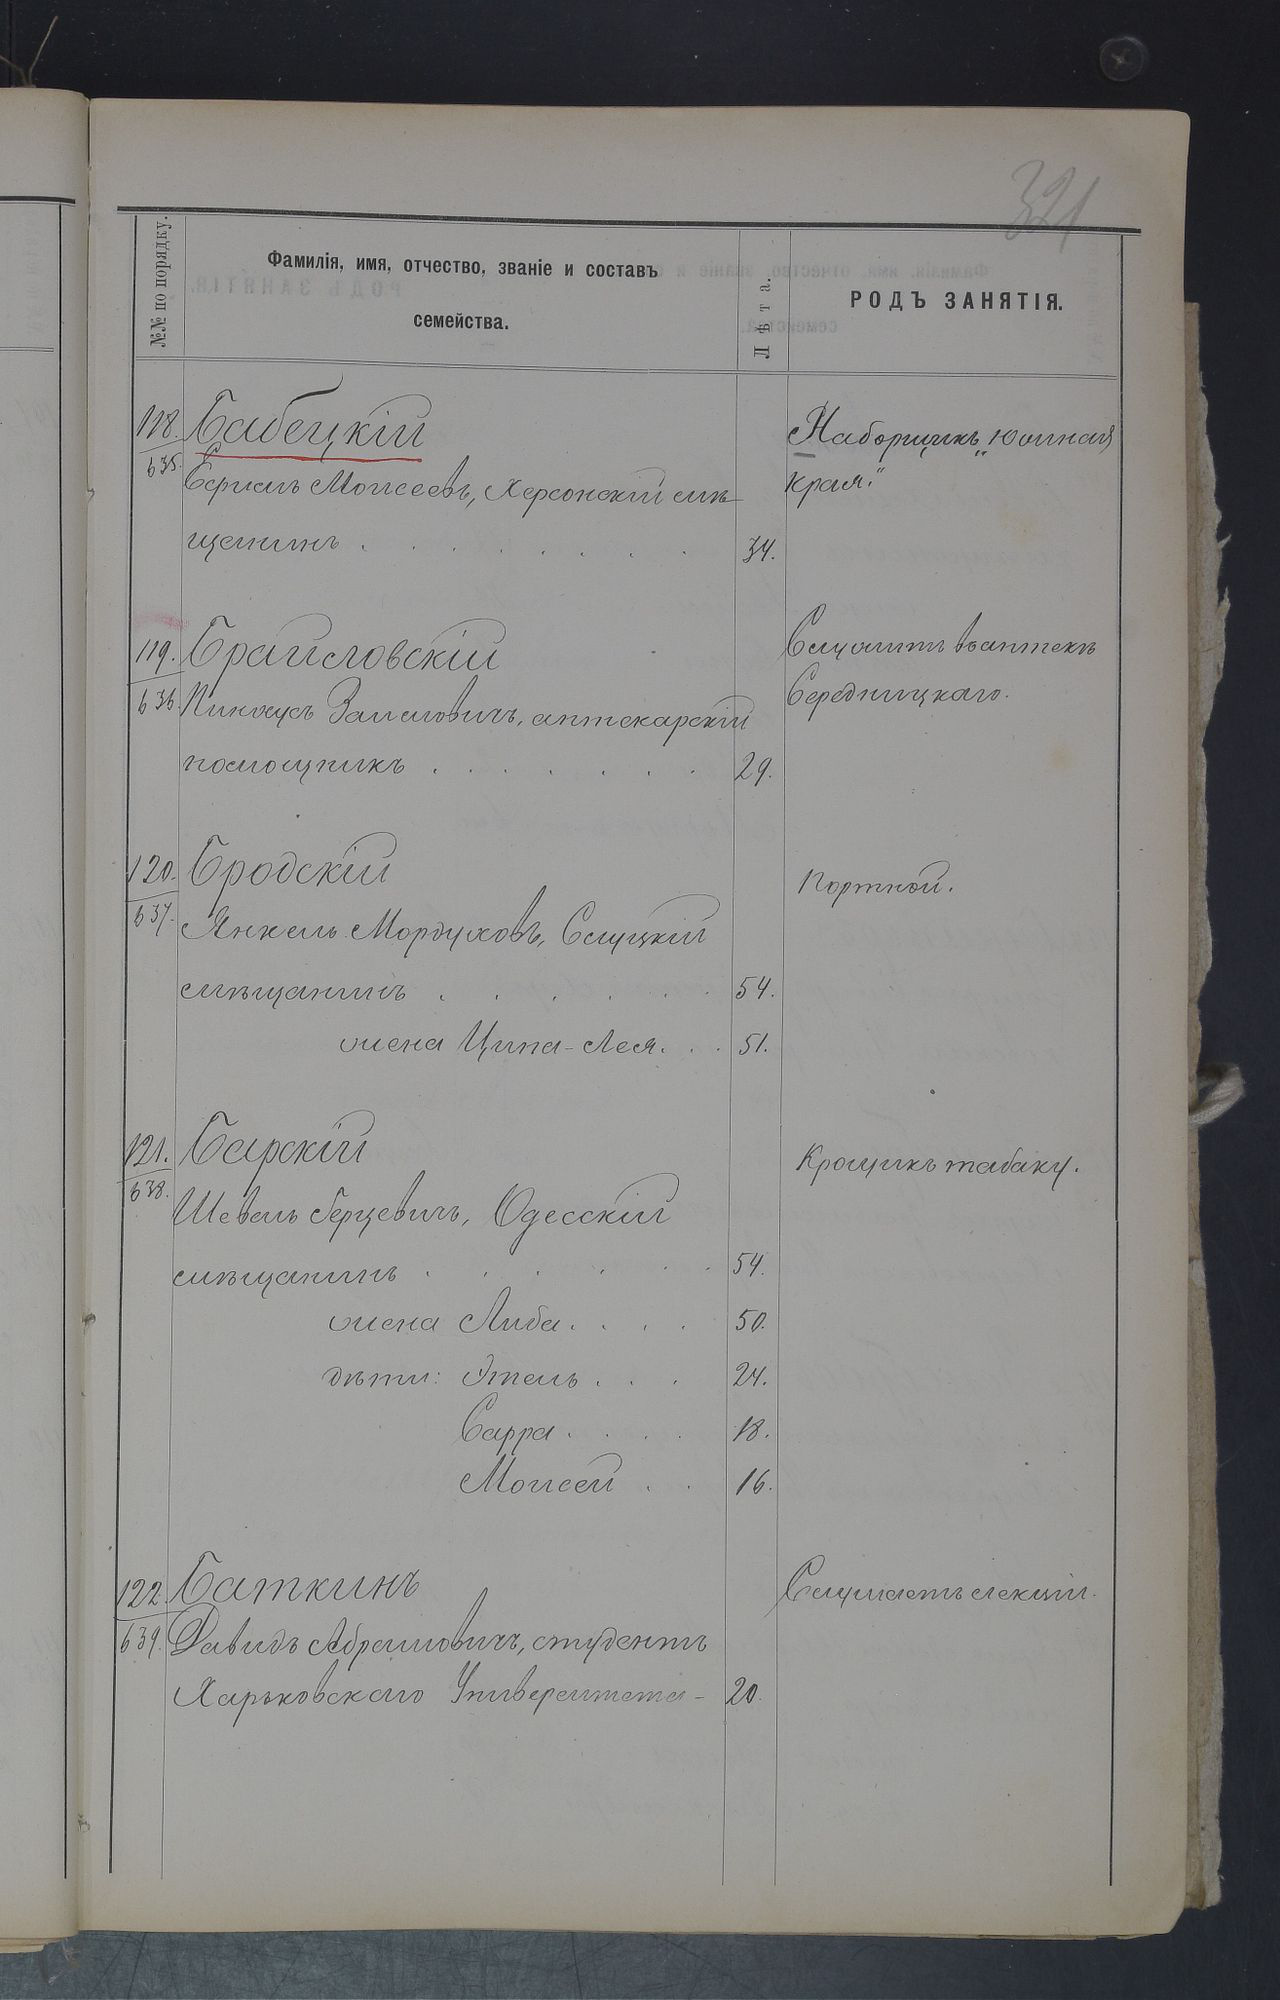 321
№№ по порядку.
Фамилія, имя, отчество, званіе и составъ
семейства.
Лѣта.
РОДЪ ЗАНЯТІЯ.
118. Бабецкій
635.
Моисеевъ, Херсонскій мѣ-
щанинъ . . . . . . . 34.
Наборщикъ „Южнаго
края."
119. Браиловскій
636. Пинхусъ Заимовичъ, аптекарскій
помощникъ . . . . . . . 29.
Служитъ въ аптекѣ
Середницкаго.
120. Бродскій
637. Янкель Мордуховъ, Слуцкій
мѣщанинъ . . . . . . 54.
жена Ципа-Лея. . . 51.
Портной.
121. Барскій
638. Шевель Герцевичъ, Одесскій
мѣщанинъ . . . . . . 54.
жена Либа. . . . 50.
дѣти: Этель . . . 24.
Сарра . . . . 18.
Моисей . . 16.
Крошикъ табаку.
122. Баткинъ
639. Давидъ Абрамовичъ, студентъ
Харьковскаго Университета - 20.
Слушаетъ лекціи.